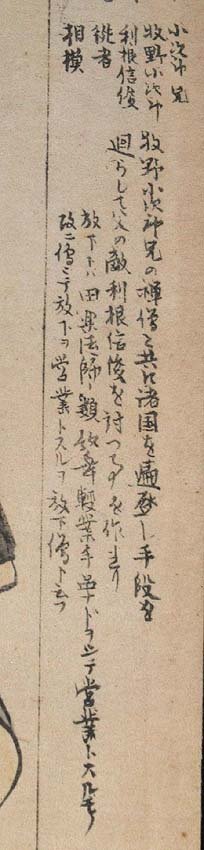 小次郎兄
牧野小次郎
利根信俊
従者
相模
牧野小次郎兄の禅僧と共に諸国を遍歴し手段を
廻らして父の敵利根信俊を討つ事を作れり
放下トハ田楽法師ノ類歌舞軽業手品ナドヲシテ営業トスルモノ
故ニ僧ニテ放下ヲ営業トスルヲ放下僧ト云フ